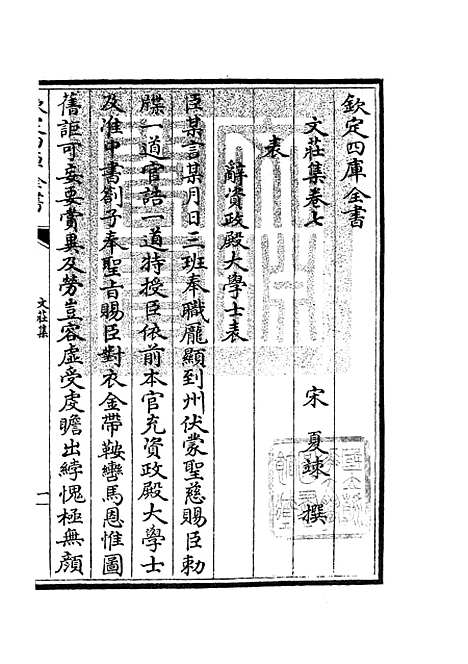 欽定四庫全書
文莊集卷七
宋 夏竦 撰
表
辭資政殿大學士表
臣某言某月日三班奉職龐顯到州伏蒙聖慈賜臣勅
牒一道官誥一道特授臣依前本官充資政殿大學士
及准中書劄子奉聖旨賜臣對衣金帶鞍轡馬恩惟圖
舊詎可妄要賞異及勞豈容虛受虔瞻出綍愧極無顔
欽定四庫全書
文莊集
一